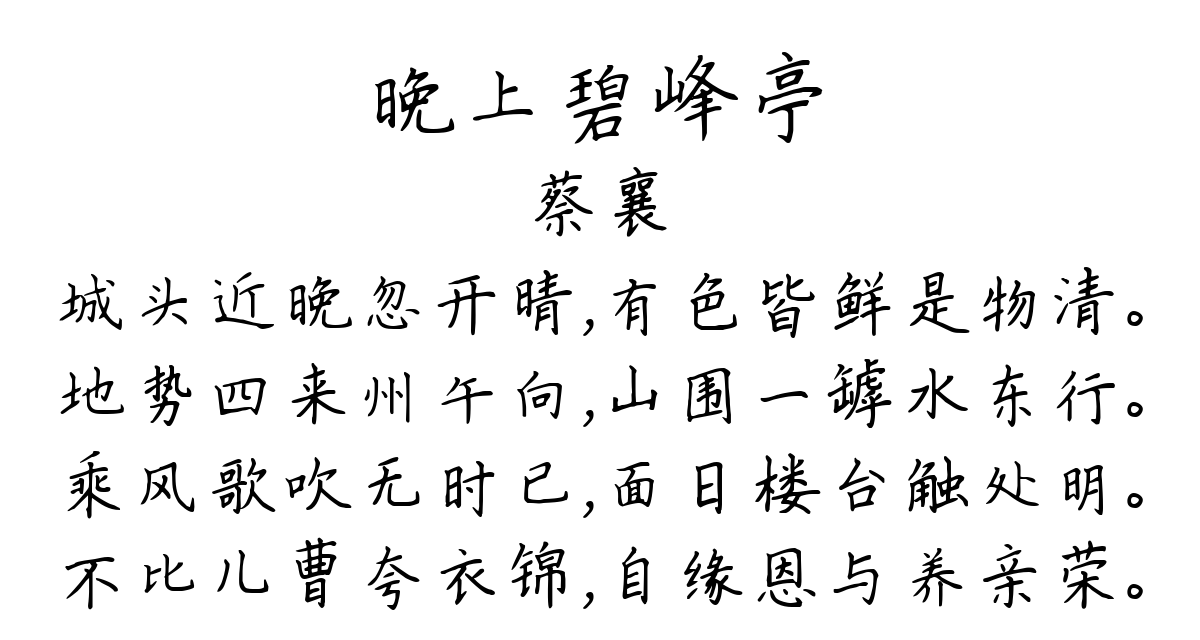 晚上碧峰亭
蔡襄
城头近晚忽开晴,有色皆鲜是物清。
地势四来州午向,山围一罅水东行。
乘风歌吹无时已,面日楼台触处明。
不比儿曹夸衣锦,自缘恩与养亲荣。